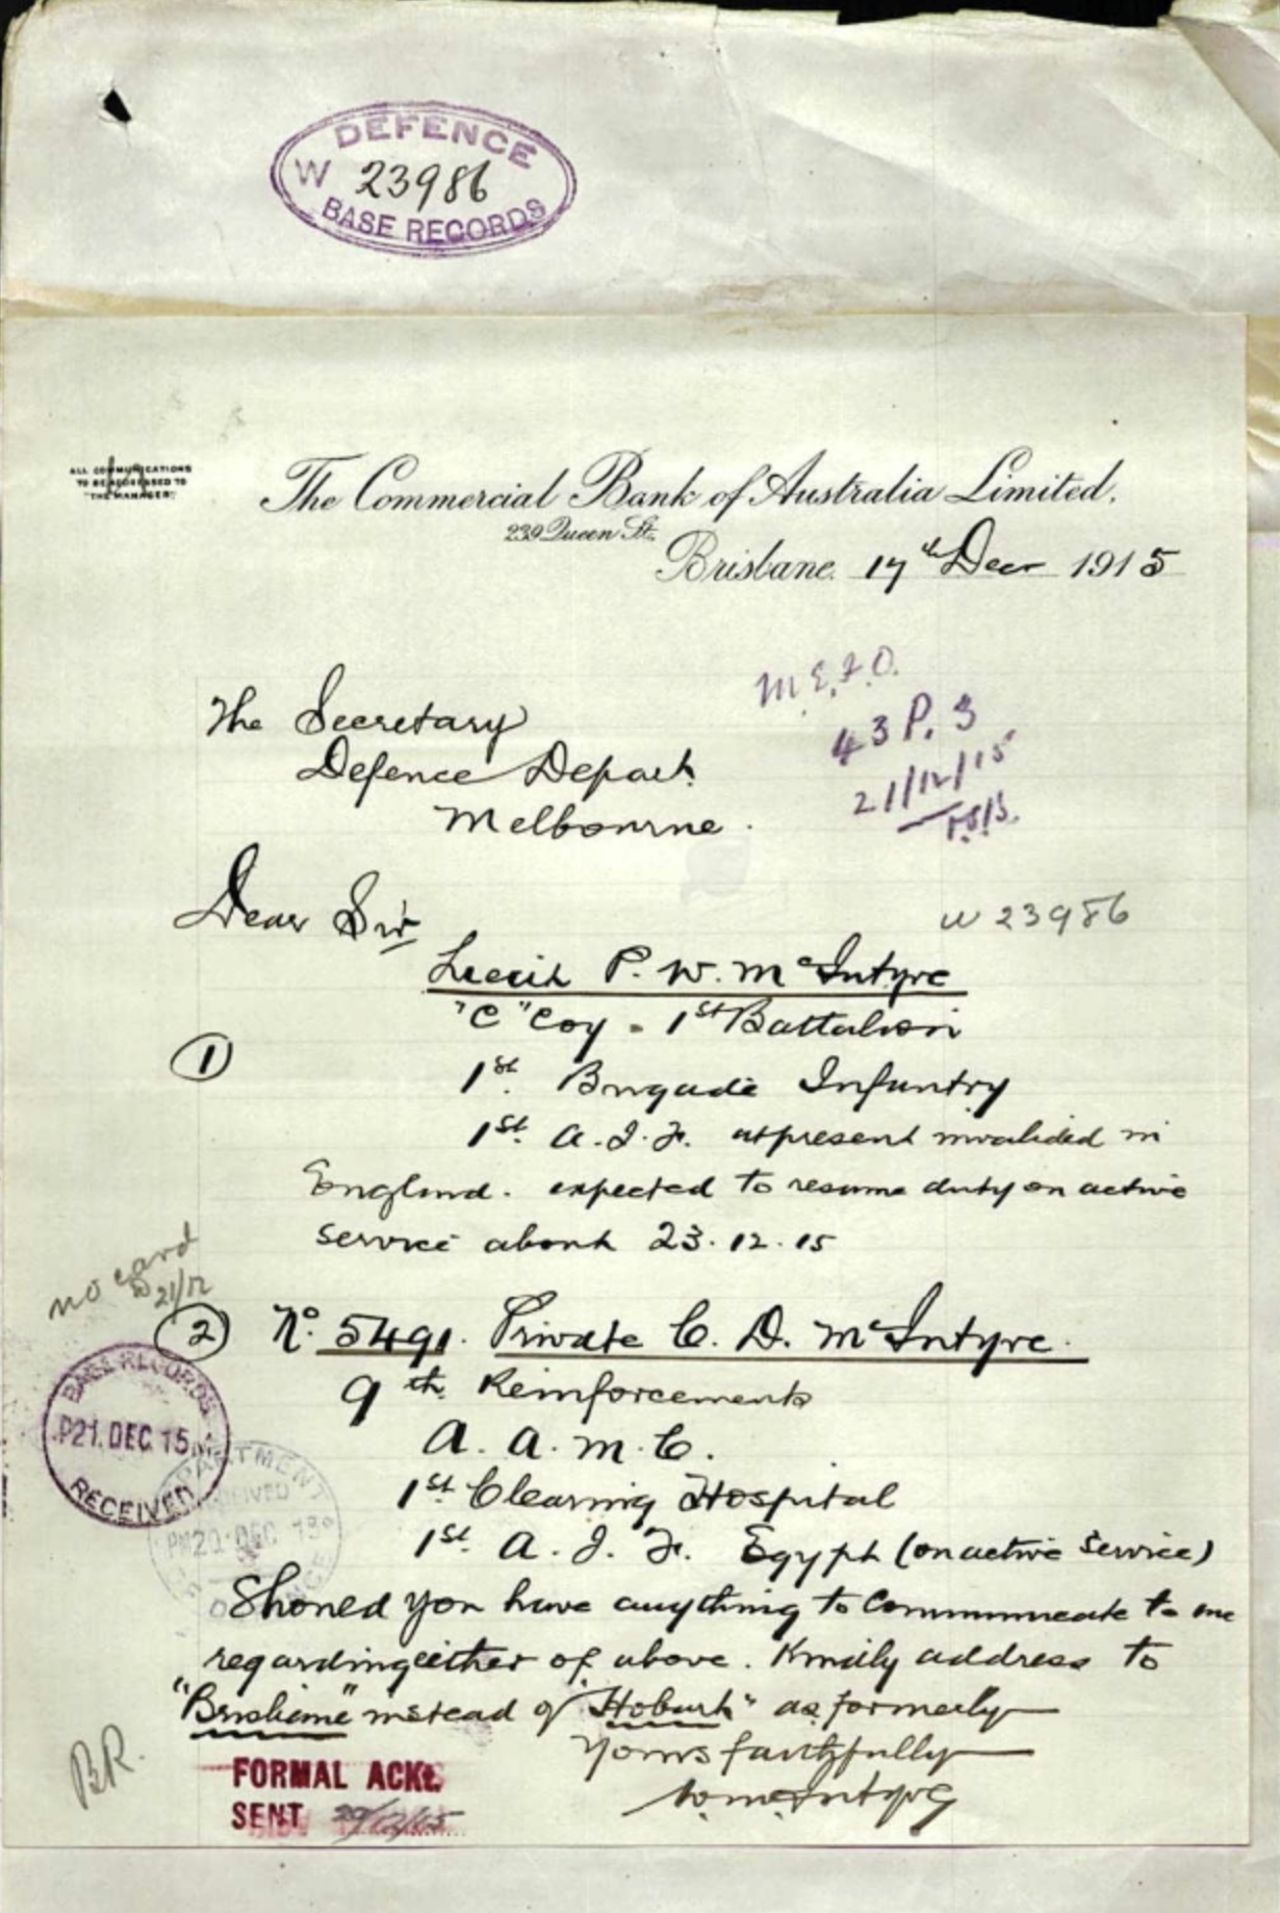 DEFENCE
W 23986
BASE RECORDS
ALL COMMUNICATIONS
TO BE ADDRESSED TO
"THE MANAGER."
The Commercial Bank of Australia Limited.
239 Queen St.
Brisbane. 17th Decr 1915
M.E.F.O.
43 P. 3
21/12/15
The Secretary
Defence Depart.
Melbourne.
Dear Sir
W 23986
Lieut P. W. McIntyre
"C" Coy - 1st Battalion
1
1st. Brigade Infantry
1st. A. I. F. at present invalided in
England. expected to resume duty on active
service about 23.12.15
no card
21/12
2 No. 5491. Private C. D. McIntyre.
9th. Reinforcements
A. A. M. C.
1st Clearing Hospital
1st. A. I. F. Egypt (on active service)
BASE RECORDS
P21. DEC. 15
RECEIVED
Should you have anything to communicate to me
regarding either of above. Kindly address to
"Brisbane" instead of "Hobart" as formerly
Yours faithfully
W. McIntyre
B.R.
FORMAL ACK.
SENT 20/12/15